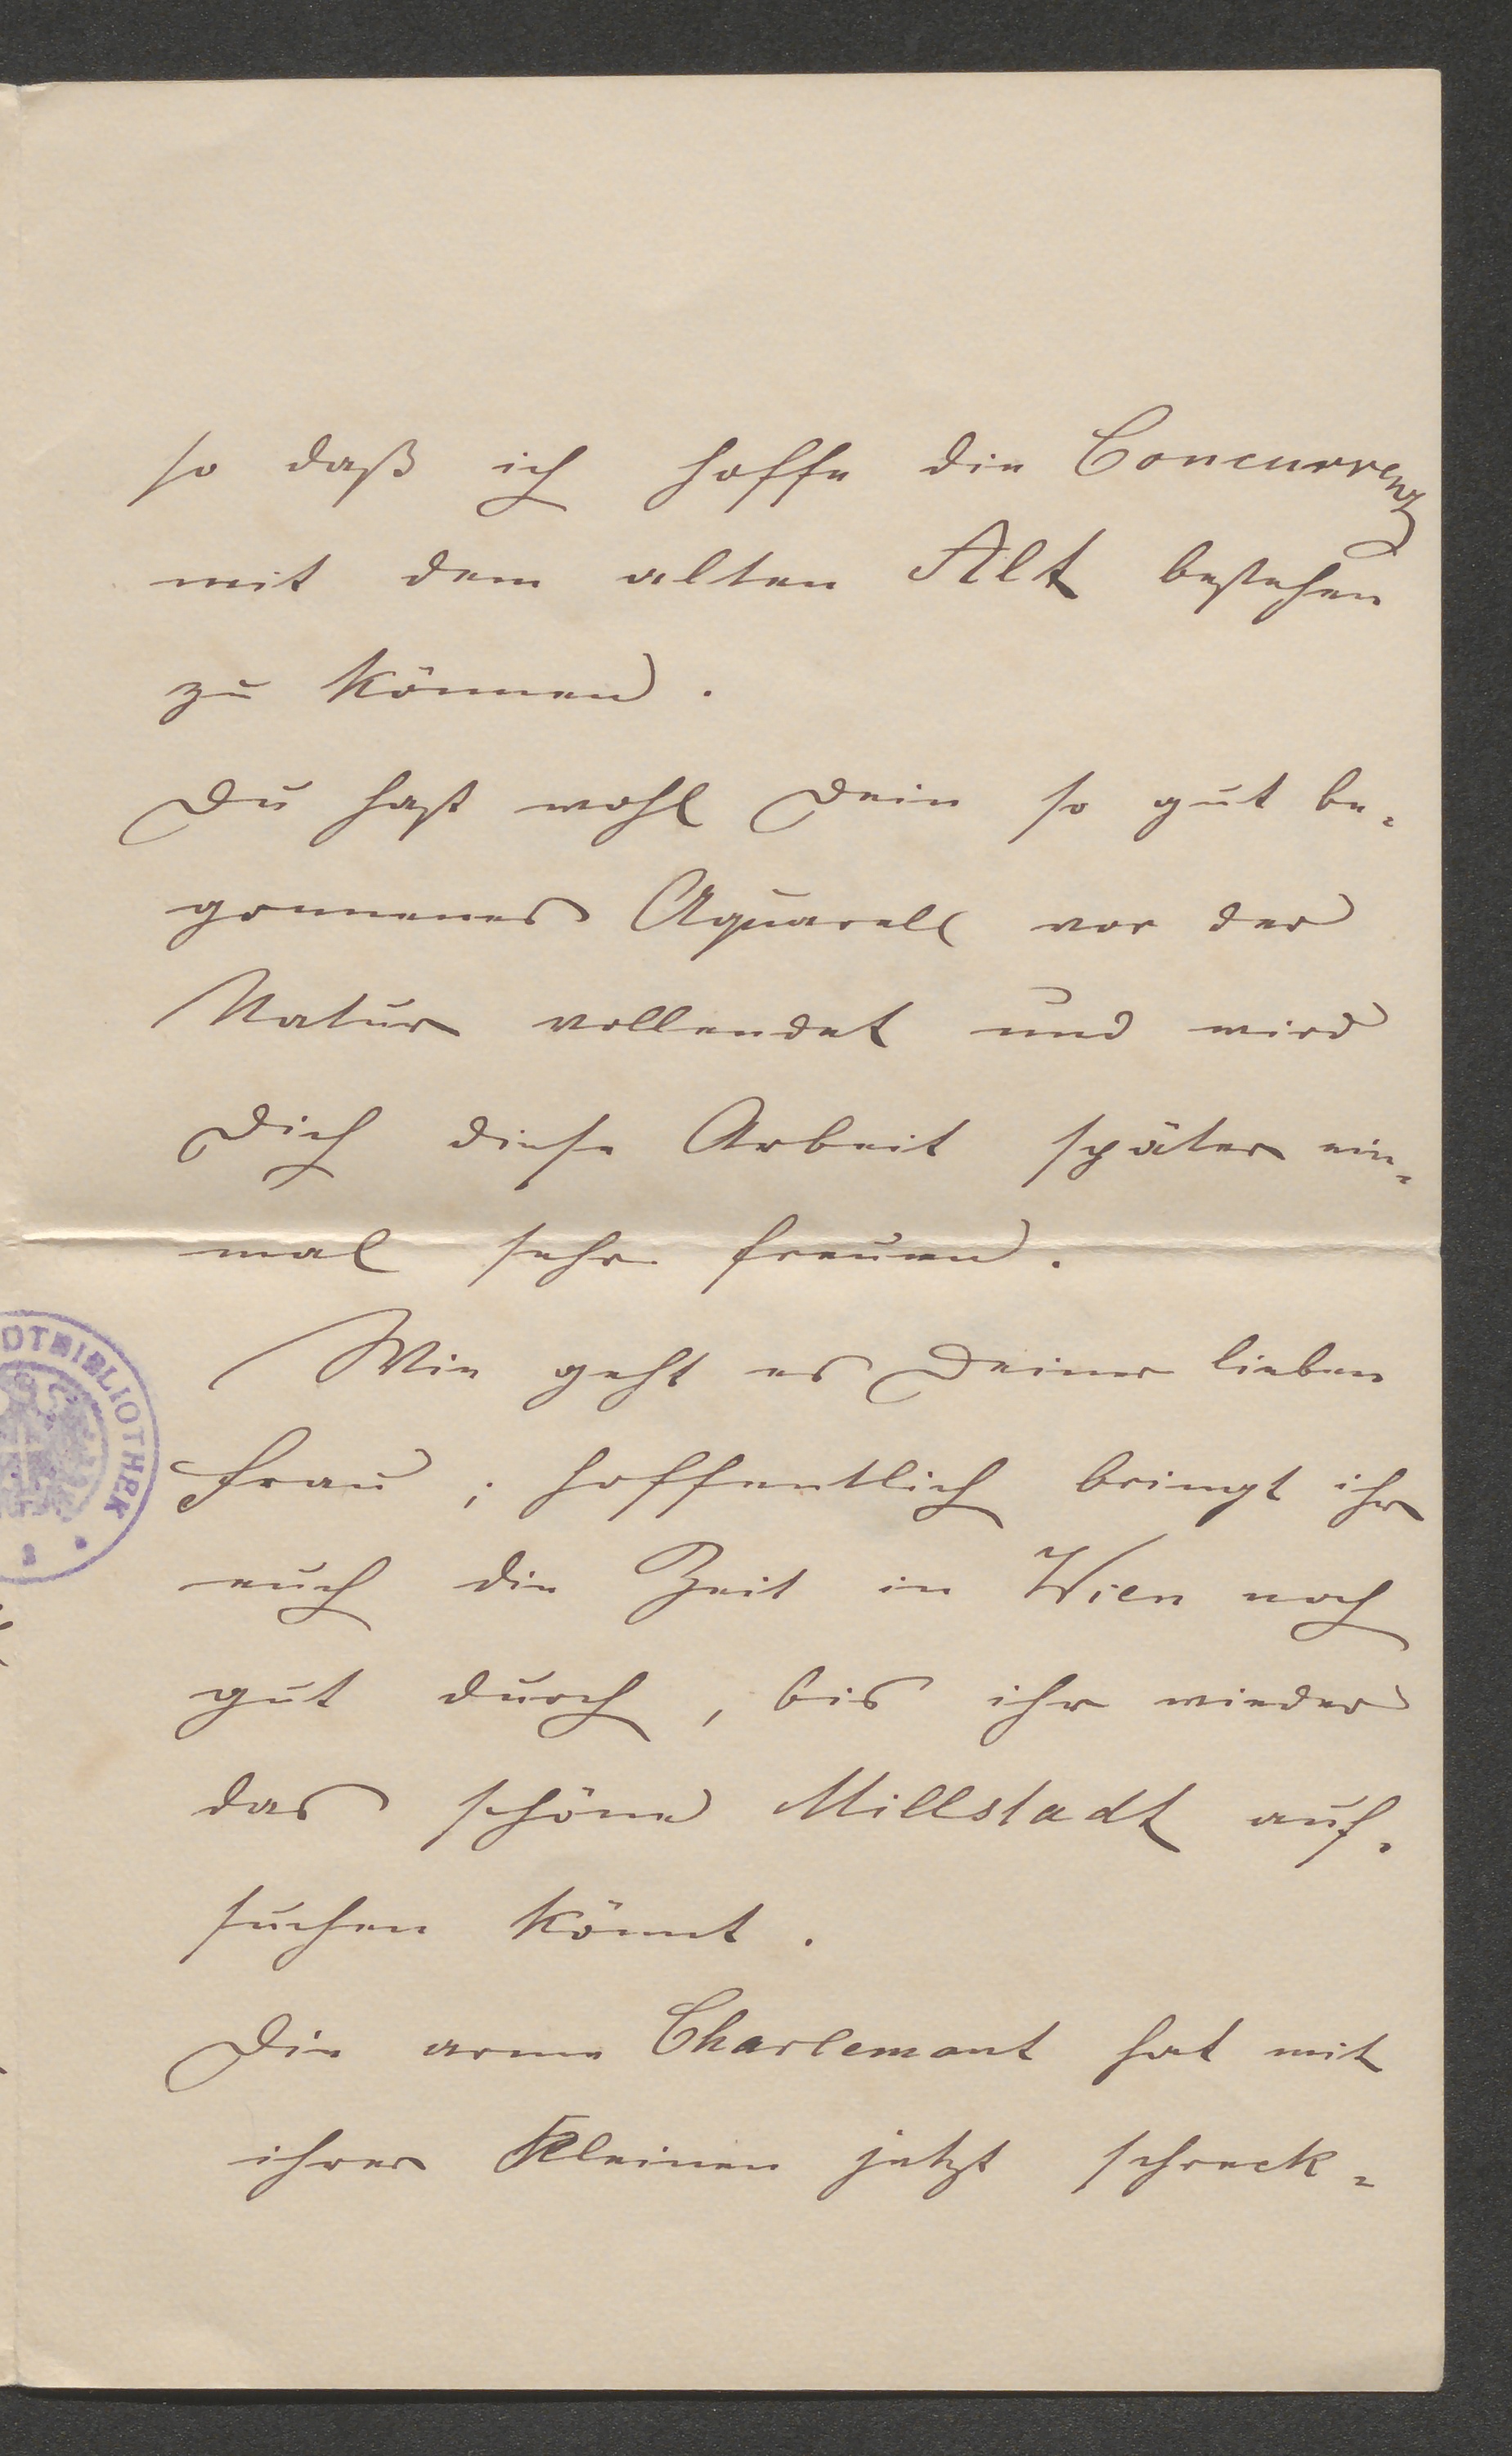 so daß ich hoffe die Concurrenz
mit dem alten Alt bestehen
zu können.
Du hast wohl Dein so gut be-
gonnenes Aquarell vor der
Natur vollendet und wird
Dich diese Arbeit später ein-
mal sehr freuen.
Wie geht es Deiner lieben
Frau; hoffentlich bringt ihr
euch die Zeit in Wien noch
gut durch, bis ihr wieder
das schöne Millstadt auf-
suchen könnt.
Die arme Charlemont hat mit
ihrer Kleinen jetzt schreck-
DTBIBLIOTHEK